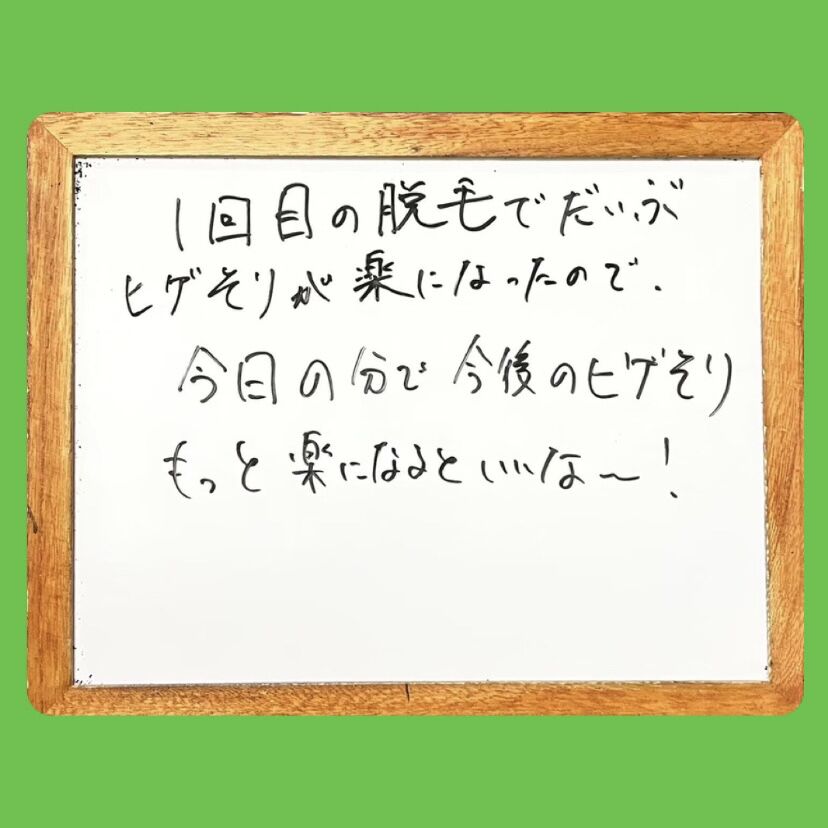 1回目の脱毛でだいぶ
ヒゲそりが楽になったので、
今日の分で今後のヒゲそり
もっと楽になるといいな〜!